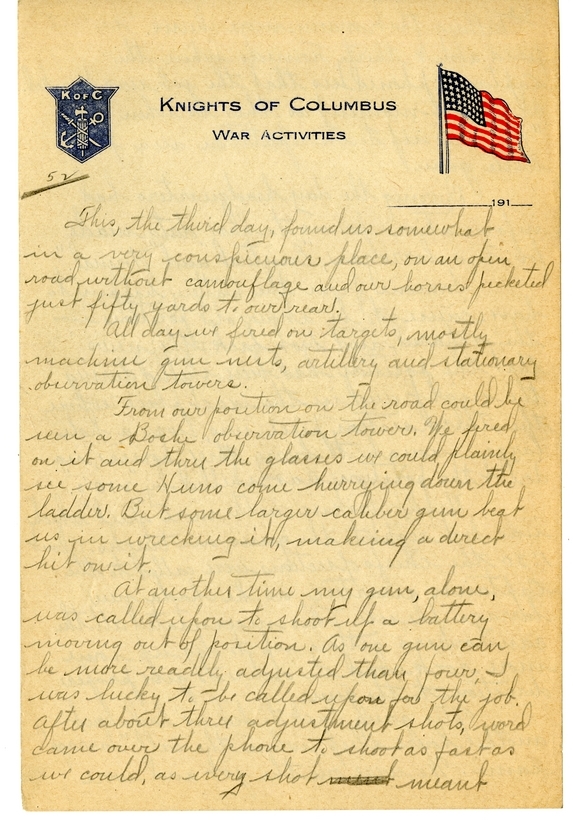 K OF C
KNIGHTS OF COLUMBUS
WAR ACTIVITIES
52
191
This, the third day, found us somewhat
in a very conspicuous place, on an open
road without camouflage and our horses picketed
just fifty yards to our rear.
All day we fired on targets, mostly
machine gun nests, artillery and stationary
observation towers.
From our position on the road could be
seen a Boshe observation tower. We fired
on it and thru the glasses we could plainly
see some Huns come hurrying down the
ladder. But some larger caliber gun beat
us in wrecking it, making a direct
hit on it.
At another time my gun, alone,
was called upon to shoot up a battery
moving out of position. As one gun can
be more readily adjusted than four, I
was lucky to be called upon for the job.
After about three adjustment shots, word
came over the phone to shoot as fast as
we could, as every shot meant